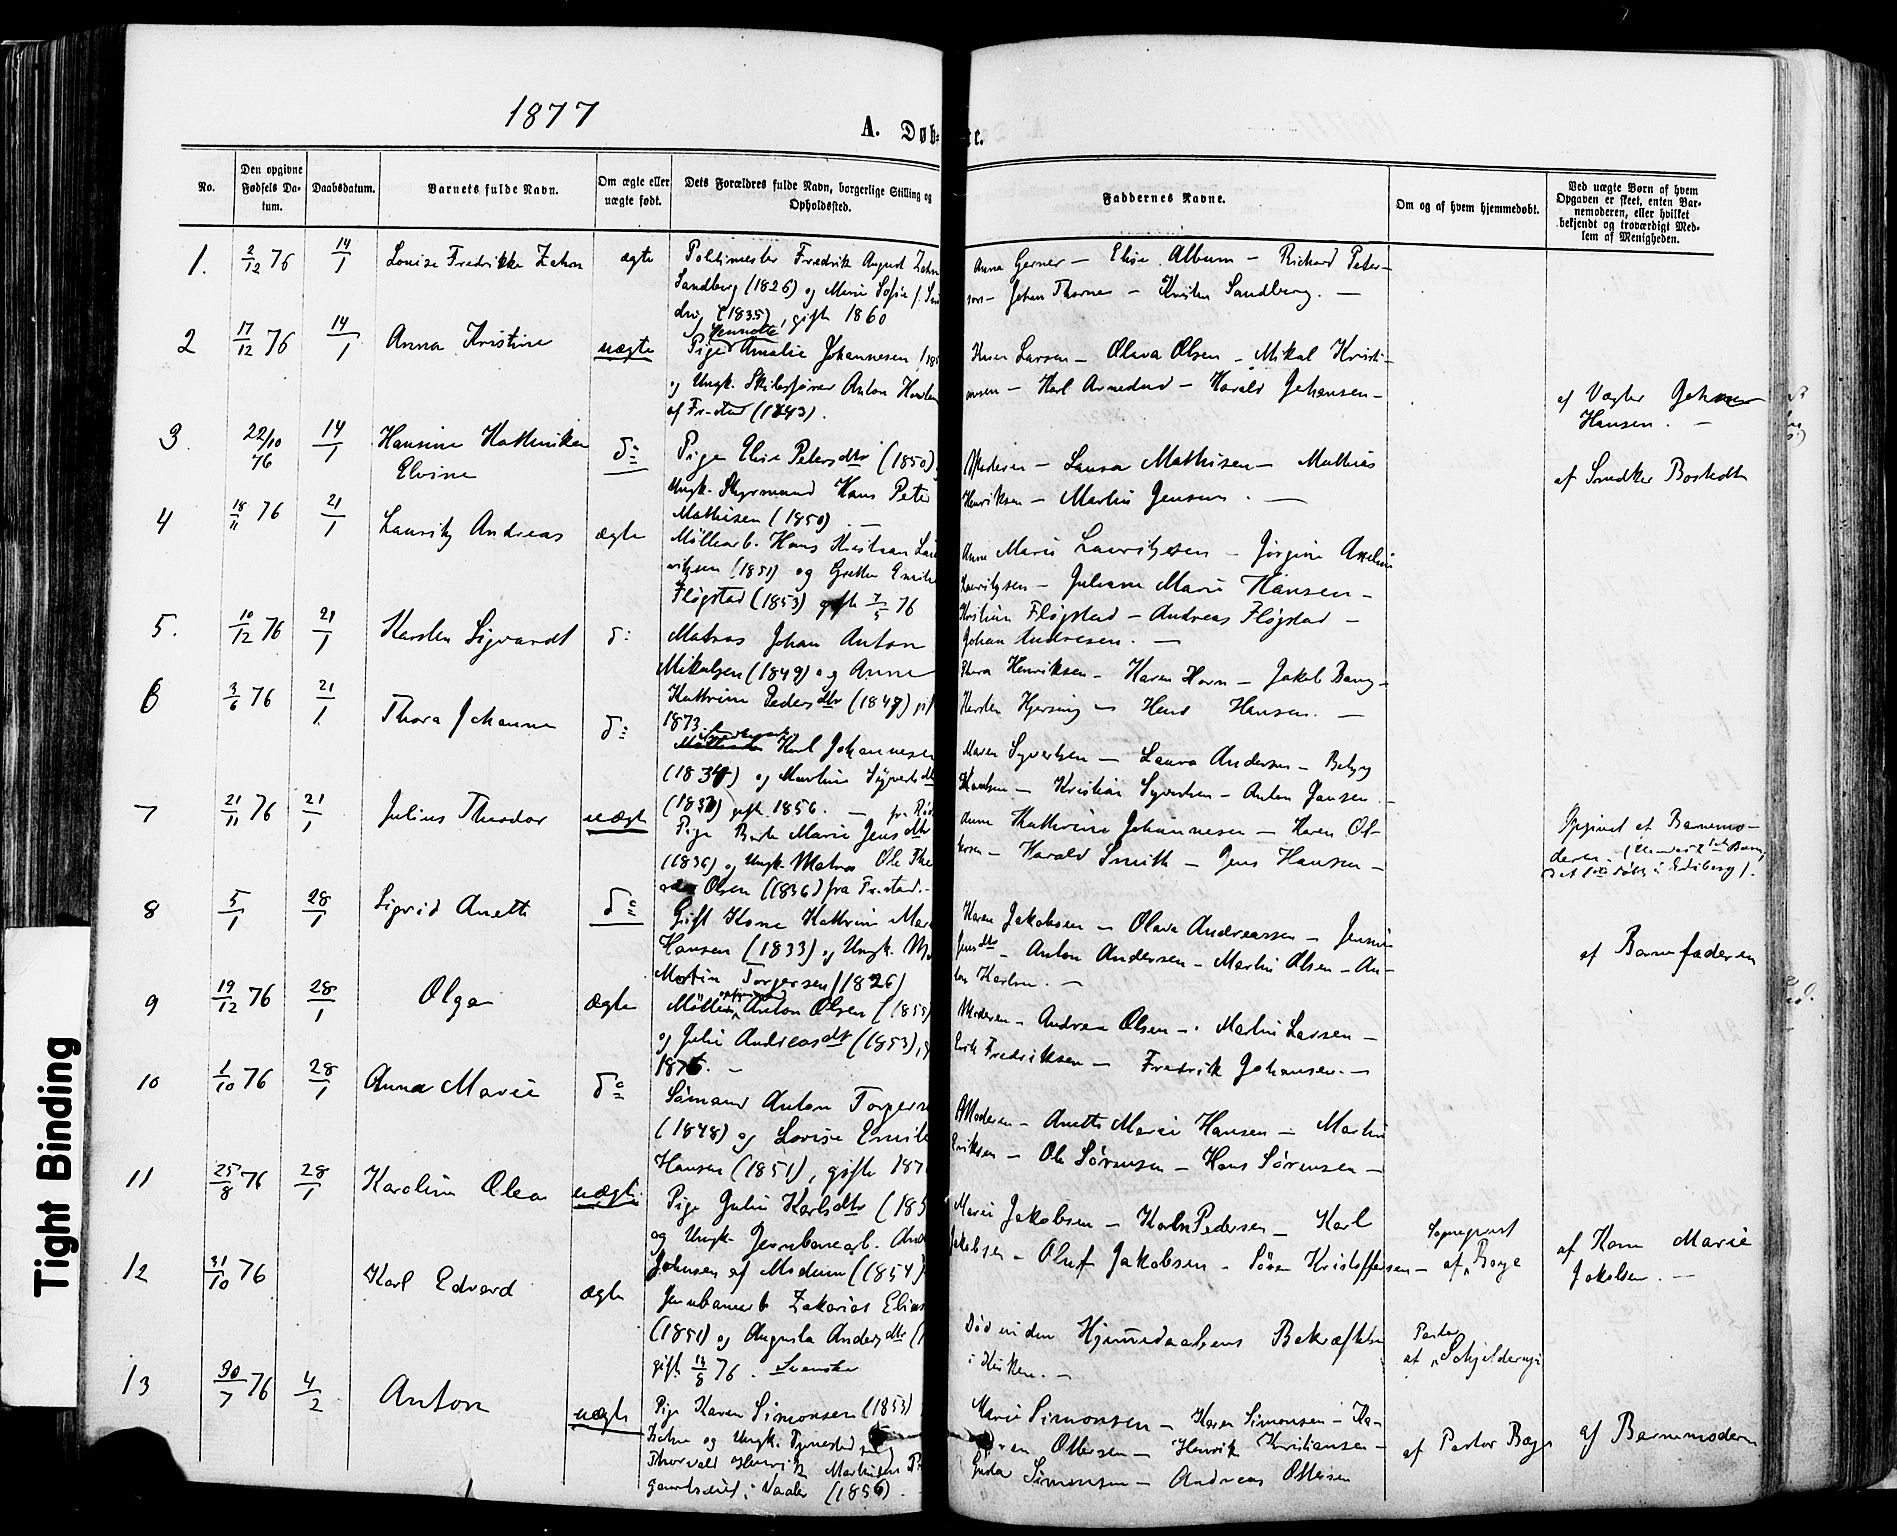 1877
A. Døb= te.
No.
Den opgivne Fødsels Da-tum.
Daabsdatum.
Barnets fulde Navn.
Om ægte eller uægte født.
Dets Forældres fulde Navn, borgerlige Stilling og Opholdssted.
Faddernes Navne.
Om og af hvem hjemmedøbt.
Ved uægte Børn af hvem Opgaven er skeet, enten Bar-nemoderen, eller hvilket bekjendt og troværdigt Med-lem af Menigheden.
1. 2/12 76 14/1 Louise Fredrikke Zahn ægte
Politimester Fredrik August Zahn
Sandberg (1826) og Marie Sofie f.
(1835), gift 1860
Anna Gerner — Elise Album — Richard Peter-
son — Johan Thorne — Kristen Sandberg. —
2 17/12 76 14/1 Anna Kristine uægte
Henriette
Pige Amalie Johannesen
og Ungk. Anton
af Fr.stad (1843).
Larsen — Olava Olsen — Mikal Kristi-
ansen — Karl — Harald Johansen —
af Vægter Johan
Hansen. —
3. 22/10 76 14/1 Hansine Kathrine
Elvine
do
Pige Elise Petersdtr (1850),
Ungk. Styrmand Hans Peter
Mathisen (1850). —
Moderen — Laura Mathisen — Mathias
Henriksen — Martin Jensen. —
af Smedker Bostedt
4 18/11 76 21/1 Lauritz Andreas ægte
Møllearb. Hans Kristian Lau-
ritzen (1851) og Grethe Emilie
Fløgstad (1853) gift 7/5 76
Anne Marie Lauritzen — Jørgine Axeline
Lauritzen — Juliane Marie Hansen —
Kristian Fløgstad — Andreas Fløgstad —
Johan Andresen. —
5. 10/12 76 21/1 Karsten Sigvardt do
Matros Johan Anton
Mikalsen (1849) og Anne
Kathrine Pedersdtr (1847) gift
1873
Thora Henriksen — Karen Horn — Jakob Bang —
Hansen. —
6 3/6 76 21/1 Thora Johanne do
Karl Johannesen
(1834) og Martine Syvertsdtr
gift 1856. —
Maren Syvertsen — Laura Andersen —
Knudsen — Kristian Syvertsen — Anton Jansen. —
7 21/11 76 21/1 Julius Theodor uægte
Pige Berte Marie Jensdtr
(1836) og Ungk. Matros Ole The-
odor Olsen (1836) fra Fr.stad. —
Anne Kathrine Johannesen — Karen Ol-
sen — Harald Smith — Jens Hansen —
Opgivet af Barnemo-
deren.
8 5/1 28/1 Sigrid Anette do
Gift Kone Kathrine Marie
Hansen (1833) og Ungk.
Martin Torgersen (1826)
Karen Jakobsen — Olava Andreassen — Jensine
Jensdtr — Anton Andersen — Martin Olsen — An-
ton Karlsen. —
af Barnefaderen
9 19/12 76 28/1 Olga ægte
Anton Olsen (1855)
og Julie Andreasdtr (1853),
1876. —
Moderen — Andrea Olsen — Martin Larsen —
Erik Fredriksen — Fredrik Johansen. —
10 1/10 76 28/1 Anna Marie do
Sømand Anton Torgersen
(1848) og Lovise Emilie
Hansen (1851), gifte 187
Moderen — Anette Marie Hansen — Martin
Eriksen — Ole Sørensen — Hans Sørensen —
11 25/8 76 28/1 Karoline Olea uægte
Pige Julie Karlsdtr (185
og Ungk. Jernbanearb.
Johnsen af Modum (1854)
Marie Jakobsen — Karln Pedersen — Karl
Jakobsen — Oluf Jakobsen — Søren Kristoffersen —
Sognepræst
af Børge
af Kone Marie
Jakobsen. —
12 31/10 76 Karl Edvard ægte
Jernbanearb. Zakarias Elias
(1851) og Augusta Andersdtr
gift 13/8 76. Svenske
Død inden Hjemmedaabens Bekræftelse
i Kirken. —
Pastor
af Schjelderup
13 30/7 76 4/2 Anton uægte
Pige Karen Simonsen (1853)
og Ungk.
Thorvald Henrik Mathisen
i Vaaler (1856).
Marie Simonsen — Karen Simonsen — Ka-
ren Ottersen — Henrik Kristiansen —
Simonsen — Andreas Ottersen
af Pastor Bøgs
af Barnemoderen
Tight Binding